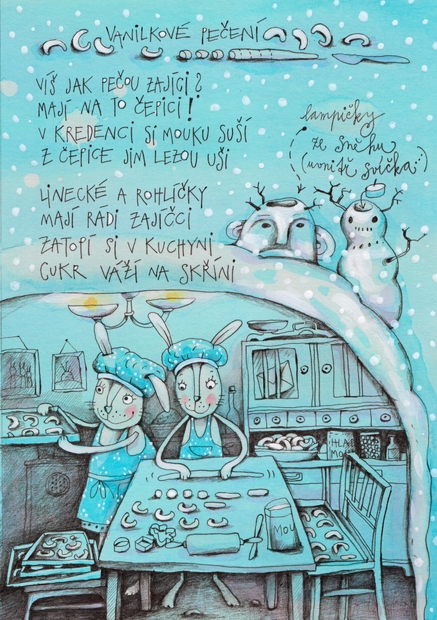 VANILKOVÉ PEČENÍ
VÍŠ JAK PEČOU ZAJÍCI?
MAJÍ NA TO ČEPICI!
V KREDENCI SI MOUKU SUŠÍ
Z ČEPICE JIM LEZOU UŠI
LINECKÉ A ROHLÍČKY
MAJÍ RÁDI ZAJÍČCI
ZATOPÍ SI V KUCHYNI
CUKR VÁŽÍ NA SKŘÍNI
lampičky
ze sněhu
(uvnitř svíčka)
HLA
MOU